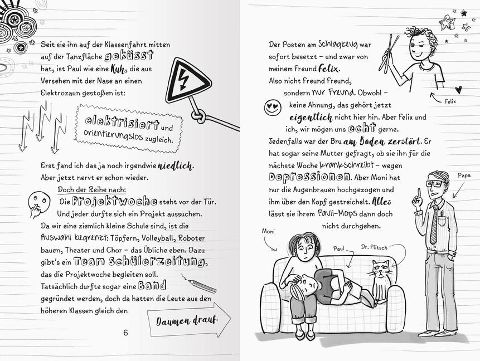 Seit sie ihn auf der Klassenfahrt mitten
auf der Tanzfläche geküsst
hat, ist Paul wie eine Kuh, die aus
Versehen mit der Nase an einen
Elektrozaun gestoßen ist:
elektrisiert und
orientierungslos zugleich.
Erst fand ich das ja noch irgendwie niedlich.
Aber jetzt nervt er schon wieder.
Doch der Reihe nach:
Die Projektwoche steht vor der Tür.
Und jeder durfte sich ein Projekt aussuchen.
Da wir eine ziemlich kleine Schule sind, ist die
Auswahl begrenzt: Töpfern, Volleyball, Roboter
bauen, Theater und Chor – das Übliche eben. Dazu
gibt's ein Team Schülerzeitung,
das die Projektwoche begleiten soll.
Tatsächlich durfte sogar eine Band
gegründet werden, doch da hatten die Leute aus den
höheren Klassen gleich den
Daumen drauf.
6
Der Posten am Schlagzeug war
sofort besetzt – und zwar von
meinem Freund Felix.
Also nicht Freund Freund,
sondern nur Freund. Obwohl –
keine Ahnung, das gehört jetzt
eigentlich nicht hier hin. Aber Felix und
ich, wir mögen uns echt gerne.
Jedenfalls war der Bru am Boden zerstört. Er
hat sogar seine Mutter gefragt, ob sie ihn für die
nächste Woche krankschreibt – wegen
Depressionen. Aber Moni hat
nur die Augenbrauen hochgezogen und
ihm über den Kopf gestreichelt. Alles
lässt sie ihrem Pauli-Mops dann doch
nicht durchgehen.
Felix
Papa
Moni
Paul
Dr. Plüsch